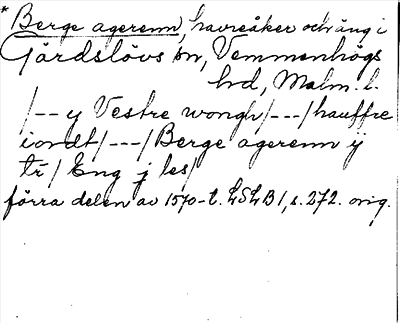 * Berge agerenn, havreåker och äng i
Gärdslövs sn, Vemmenhögs
hd, Malm. l.
/-- y Vestre wongh/---/hauffre
iordt/---/Berge agerenn ij
tr/ Eng j les/
förra delen av 1570-t. LSLB1, s. 272. orig.